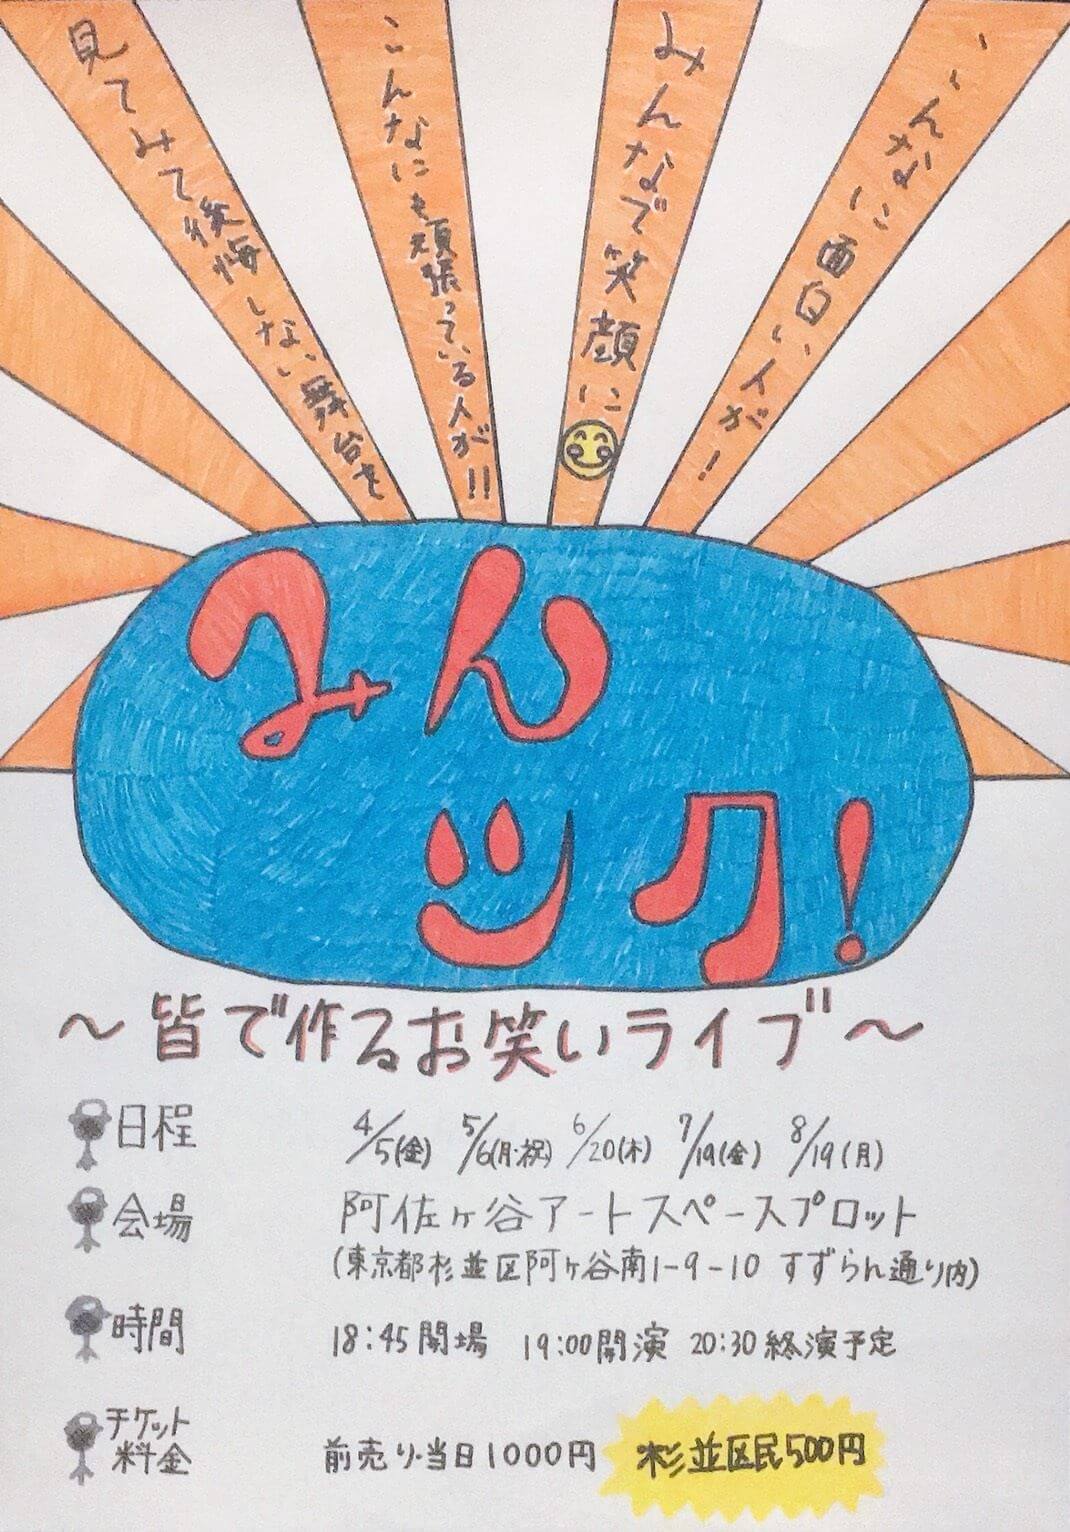 こんなに面白い人が!
みんなで笑顔に
こんなにも頑張っている人が!!
見てみて後悔しない舞台を
みん
ツク!
～皆で作るお笑いライブ～
日程 4/5(金) 5/6(月・祝) 6/20(木) 7/19(金) 8/19(月)
会場 阿佐ヶ谷アートスペースプロット
(東京都杉並区阿ヶ谷南1-9-10 すずらん通り内)
時間 18:45開場 19:00開演 20:30終演予定
チケット
料金 前売り・当日1000円 杉並区民500円